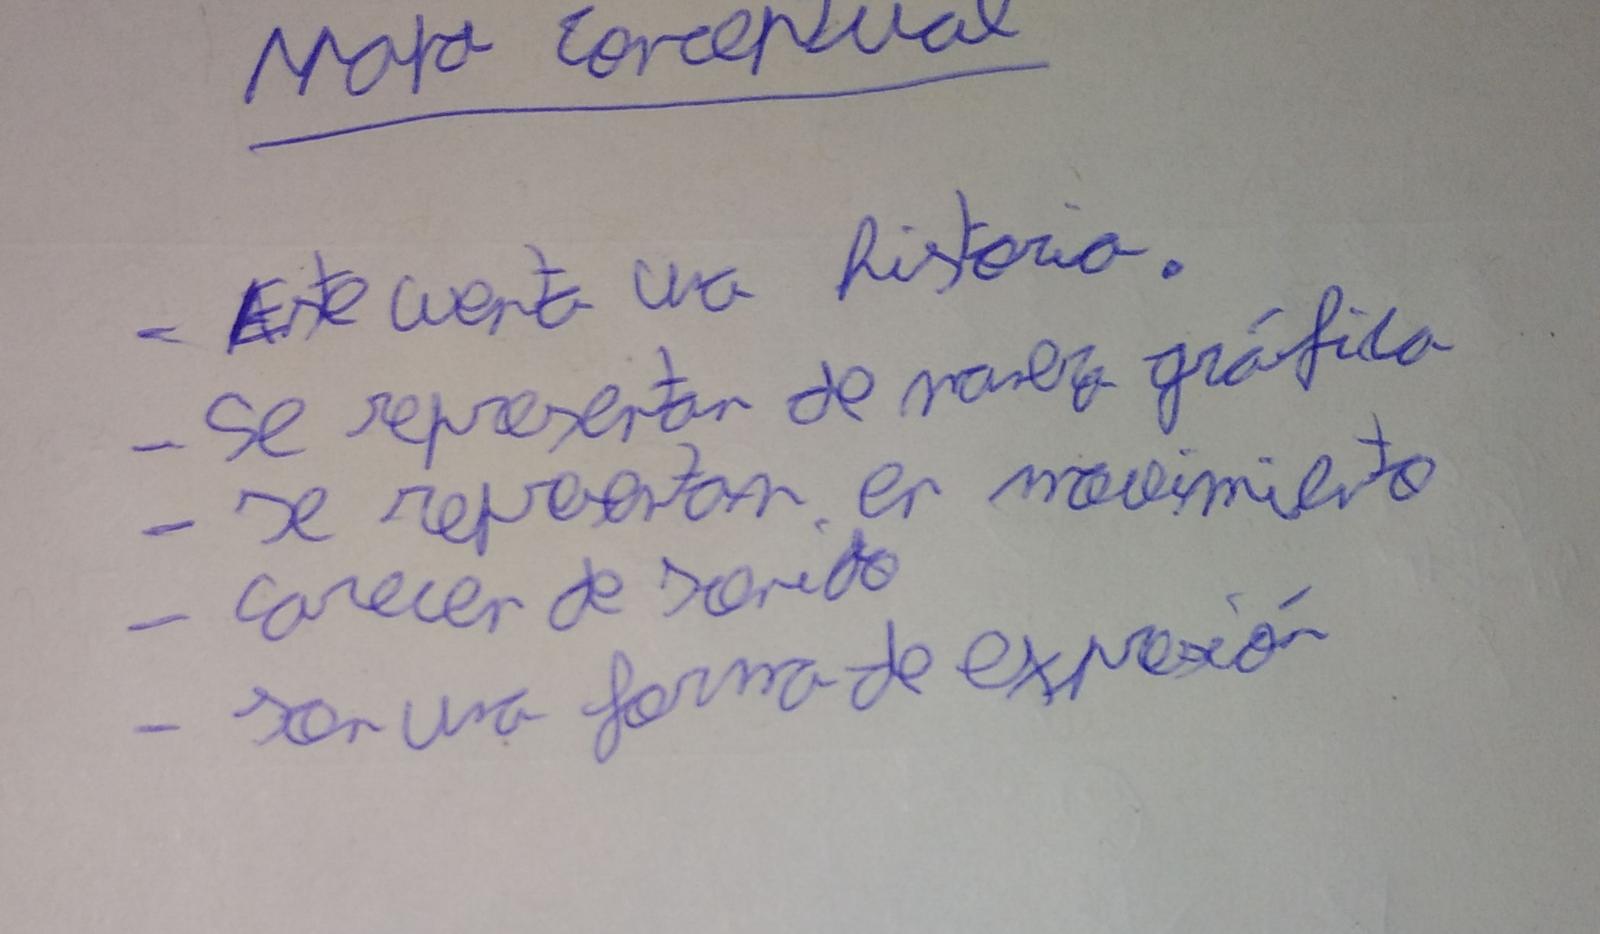 Mapa Conceptual
- Este cuenta una historia.
- Se representan de manera gráfica
- se representan en movimiento
- carecen de sonido
- son una forma de expresión